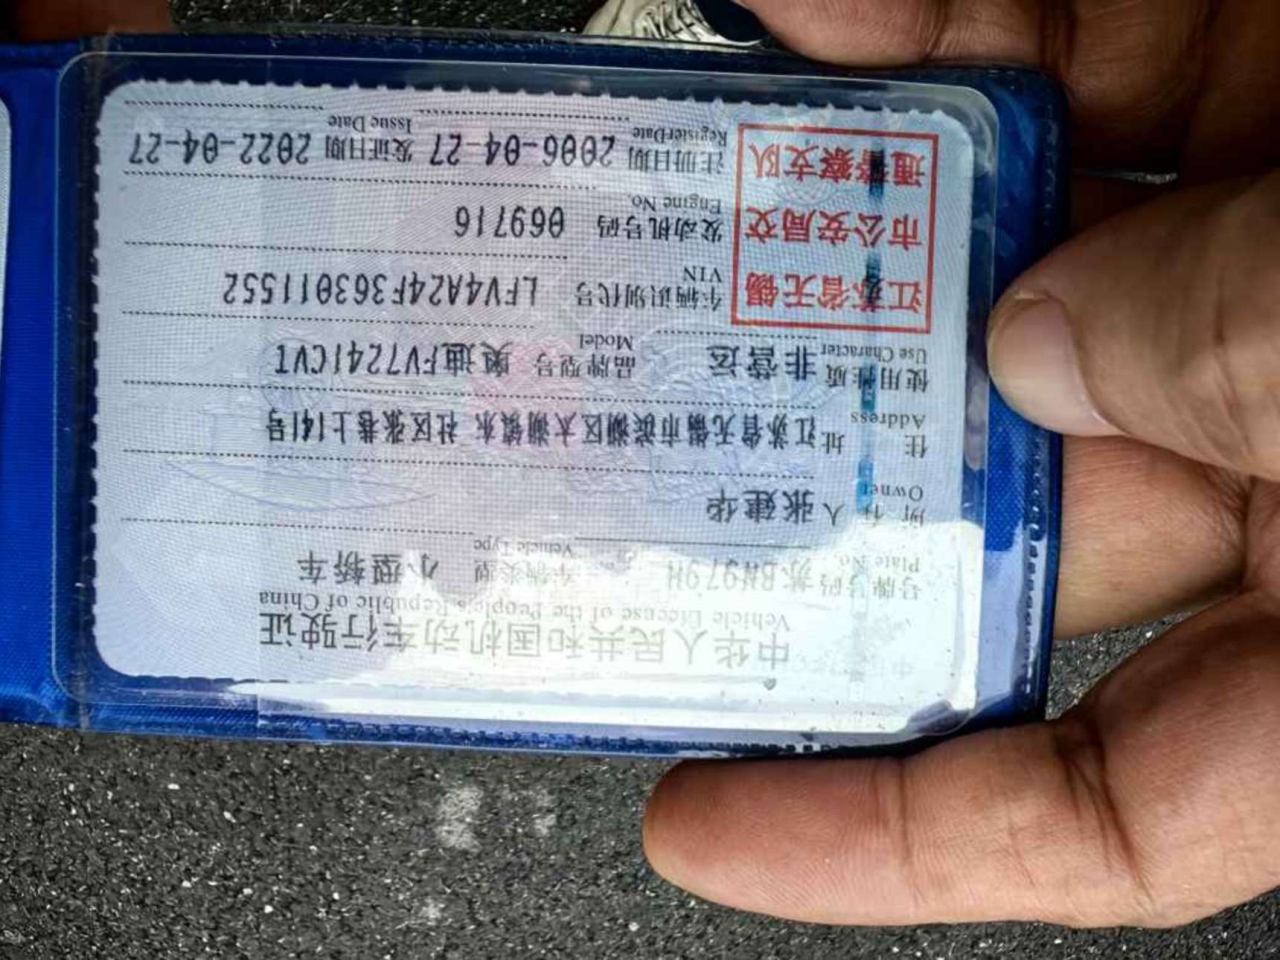 中华人民共和国机动车行驶证
Vehicle License of the People's Republic of China
号牌号码 苏BW979H 车辆类型 小型轿车
Plate No. Vehicle Type
所有人 张建华
Owner
住址 江苏省无锡市滨湖区太湖镇东 社区张巷上141号
Address
使用性质 非营运 品牌型号 奥迪FV7241CVT
Use Character Model
江苏省无锡
市公安局交
通警察支队
车辆识别代号 LFV4A24F363011552
VIN
发动机号码 069716
Engine No.
注册日期 2006-04-27 发证日期 2022-04-27
RegisterDate Issue Date